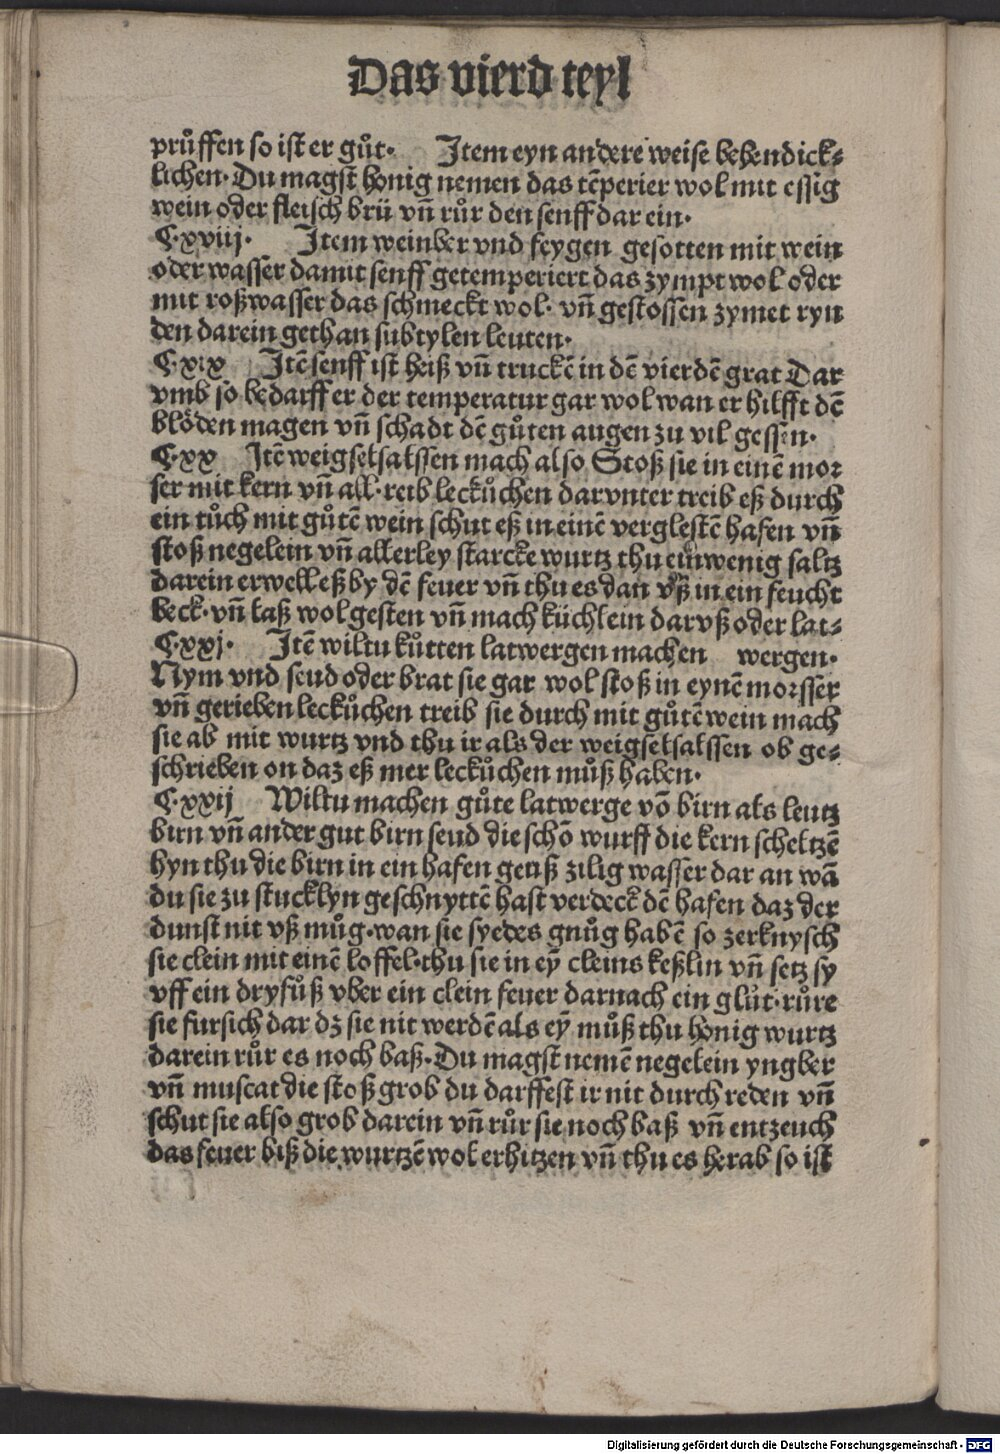 Das vierd teyl
průffen so ist er gůt· Item eyn andere weise behendick⸗
lichen· Du magst honig nemen das tẽperier wol mit essig
wein oder fleisch brü vñ růr den senff dar ein·
C·xviij· Item weinber vnd feygen gesotten mit wein
oder wasser damit senff getemperiert das zympt wol oder
mit roßwasser das schmeckt wol· vñ gestossen zymet ryn
den darein gethan subtylen leuten·
C·xix Itẽ senff ist heiß vñ truckẽ in dẽ vierdẽ grat Dar
vmb so bedarff er der temperatur gar wol wan er hilfft dẽ
blöden magen vñ schadt dẽ gůten augen zu vil gessen·
C·xx Itẽ weigselsalssen mach also Stoß sie in einẽ mor
ser mit kern vñ all·reib leckůchen darvnter treib eß durch
ein tůch mit gůtẽ wein schut eß in einẽ verglestẽ hafen vñ
stoß negelein vñ allerley starcke wurtz thu ein wenig saltz
darein erwell eß by dẽ feuer vñ thu es dan vß in ein feucht
beck·vñ laß wol gesten vñ mach küchlein darvß oder lat⸗
C·xxj· Itẽ wiltu kůtten latwergen machen wergen·
Nym vnd seud oder brat sie gar wol stoß in eynẽ morsser
vñ gerieben leckůchen treib sie durch mit gůtẽ wein mach
sie ab mit wurtz vnd thu ir als der weigselsalssen ob ge⸗
schrieben on daz eß mer leckůchen můß haben·
C·xxij Wiltu machen gůte latwerge võ birn als leutz
birn vñ ander gut birn seud die schõ wurff die kern scheltzẽ
hyn thu die birn in ein hafen geuß zilig wasser dar an wã
du sie zu stucklyn geschnyttẽ hast verdeck dẽ hafen daz der
dunst nit vß můg·wan sie syedes gnůg habẽ so zerknysch
sie clein mit einẽ loffel·thu sie in eỹ cleins keßlin vñ setz sy
vff ein dryfůß vber ein clein feuer darnach ein glůt·růre
sie fursich dar dz sie nit werdẽ als eỹ můß thu honig wurtz
darein růr es noch baß·Du magst nemẽ negelein yngber
vñ muscat die stoß grob du darffest ir nit durch reden vñ
schut sie also grob darein vñ růr sie noch baß vñ entzeuch
das feuer biß die wurtzẽ wol erhitzen vñ thu es herab so ist
Digitalisierung gefördert durch die Deutsche Forschungsgemeinschaft - DFG